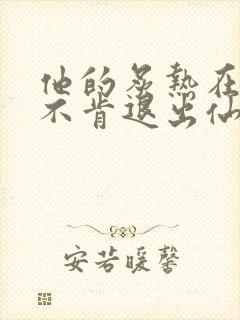 他的炙热在
不肯退出仙
安若暖馨